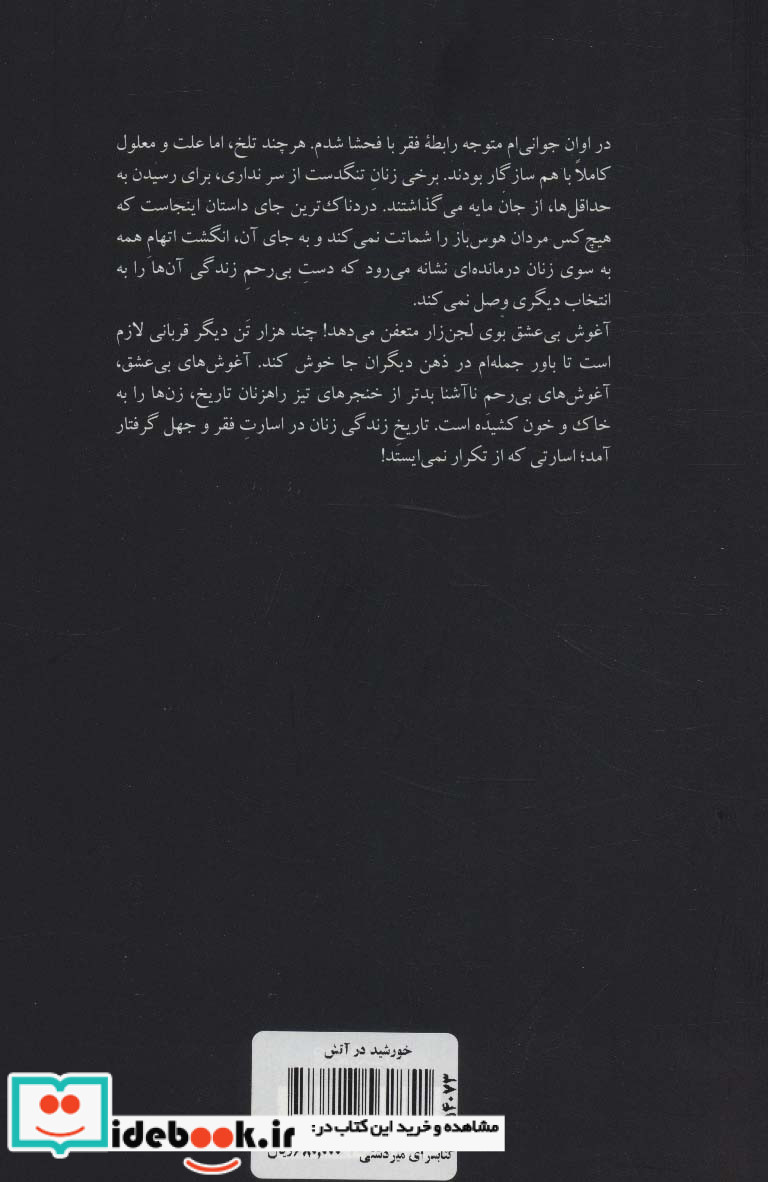 در اوان جوانی‌ام متوجه رابطهٔ فقر با فحشا شدم. هرچند تلخ، اما علت و معلول
کاملاً با هم سازگار بودند. برخی زنانِ تنگدست از سر نداری، برای رسیدن به
حداقل‌ها، از جان مایه می‌گذاشتند. دردناک‌ترین جای داستان اینجاست که
هیچ‌کس مردان هوس‌باز را شماتت نمی‌کند و به جای آن، انگشت اتهامِ همه
به سوی زنان درمانده‌ای نشانه می‌رود که دستِ بی‌رحمِ زندگی آن‌ها را به
انتخاب دیگری وصل نمی‌کند.
آغوش بی‌عشق بوی لجن‌زار متعفن می‌دهد! چند هزار تَن دیگر قربانی لازم
است تا باور جمله‌ام در ذهن دیگران جا خوش کند. آغوش‌های بی‌عشق،
آغوش‌های بی‌رحمِ ناآشنا بدتر از خنجرهای تیز راهزنان تاریخ، زن‌ها را به
خاک و خون کشیده است. تاریخِ زندگی زنان در اسارتِ فقر و جهل گرفتار
آمد؛ اسارتی که از تکرار نمی‌ایستد!
خورشید در آتش
مشاهده و خرید این کتاب در:
idebook.ir
کتابسرای میردشتی ۶۸۰,۰۰۰ ریال